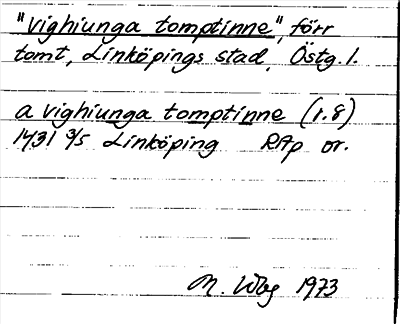 "vighiunga tomptinne", förr
tomt, Linköpings stad, Östg. l.
a vighiunga tomptinne (r. 8)
1431 9/5 Linköping RAp or.
M. Wbg 1973